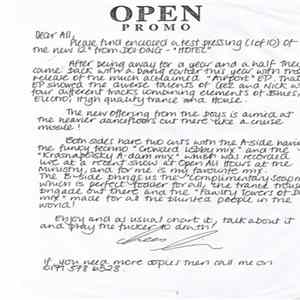 OPEN
PROMO
Dear All,
Please find enclosed a test pressing (1 of 10) of
the new 12" from JDS DARE - "HOTEL"
After being away for a year and a half they
came back with a bang earlier this year with the
release of the much acclaimed "Airport" EP. This
EP showed the diverse talents of Leet and Nick with
four different tracks containing elements of
Electro, High quality trance and House.
The new offering from the boys is aimed at
the heavier dancefloors out there like a cruise
missile!
Both sides have two cuts with the A-side having
the funky techno "General Lobby mix" and the
mix" which was recorded
live at a recent show at Open All Hours at the
Ministry, and for me is my favourite mix.
The B-side brings us the "Complimentary
which is perfect fodder for all the trance
brigade out there and the Towers of
mix" made for all the purists people in the
world!
Enjoy and as usual chart it, talk about it
and play the fucker to death!
If you need more copies then call me on
0171 378 6528.